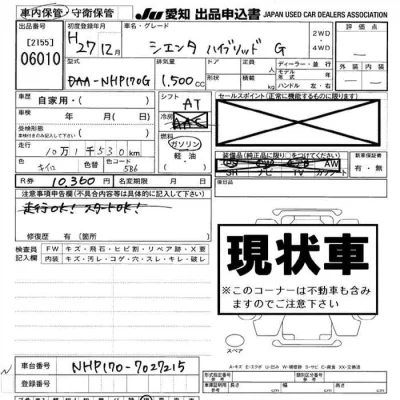 車内保管 守衛保管
JU 愛知 出品申込書 JAPAN USED CAR DEALERS ASSOCIATION
出品番号
[2155]
06010
初度登録年月 車名・グレード
H27年12月 シエンタ ハイブリッド G
2WD・4WD
評価点
型式 排気量 ドア 定員
DAA-NHP170G 1,500cc
ディーラー・並行
モデル年式
ハンドル 左・右
外装 内装
車歴 自家用・
シフト AT
セールスポイント(正常に機能するものに限ります)
車検 年 月( 日)
冷房 AAC
受検形態
走行 10万1千530km
燃料 ガソリン・軽油・
色 キイロ 色替 色コード 5B6
装備品(純正品に限り○をつけてください)
SR ナビ TV カワシート
新車保証書
有・無
R券 10,360円 名変期限 月 日
後日品
注意事項申告欄(不具合内容等は具体的に記入して下さい)
走行OK! スタートOK!
修復歴 有(箇所 )
検査員記入欄
FW キズ・飛石・ヒビ割・リペア跡・X要
内装 キズ・汚れ・コゲ・穴・スレ・キレ・破レ
現状車
※このコーナーは不動車も含みますのでご注意下さい
スペア
A-キズ E-エクボ U-凹み W-補修跡 S-サビ C-腐食 XX-交換済
車台番号 NHP170-7027215
登録番号
型式指定番号 類別区分番号
長さ cm 幅 cm 高さ cm